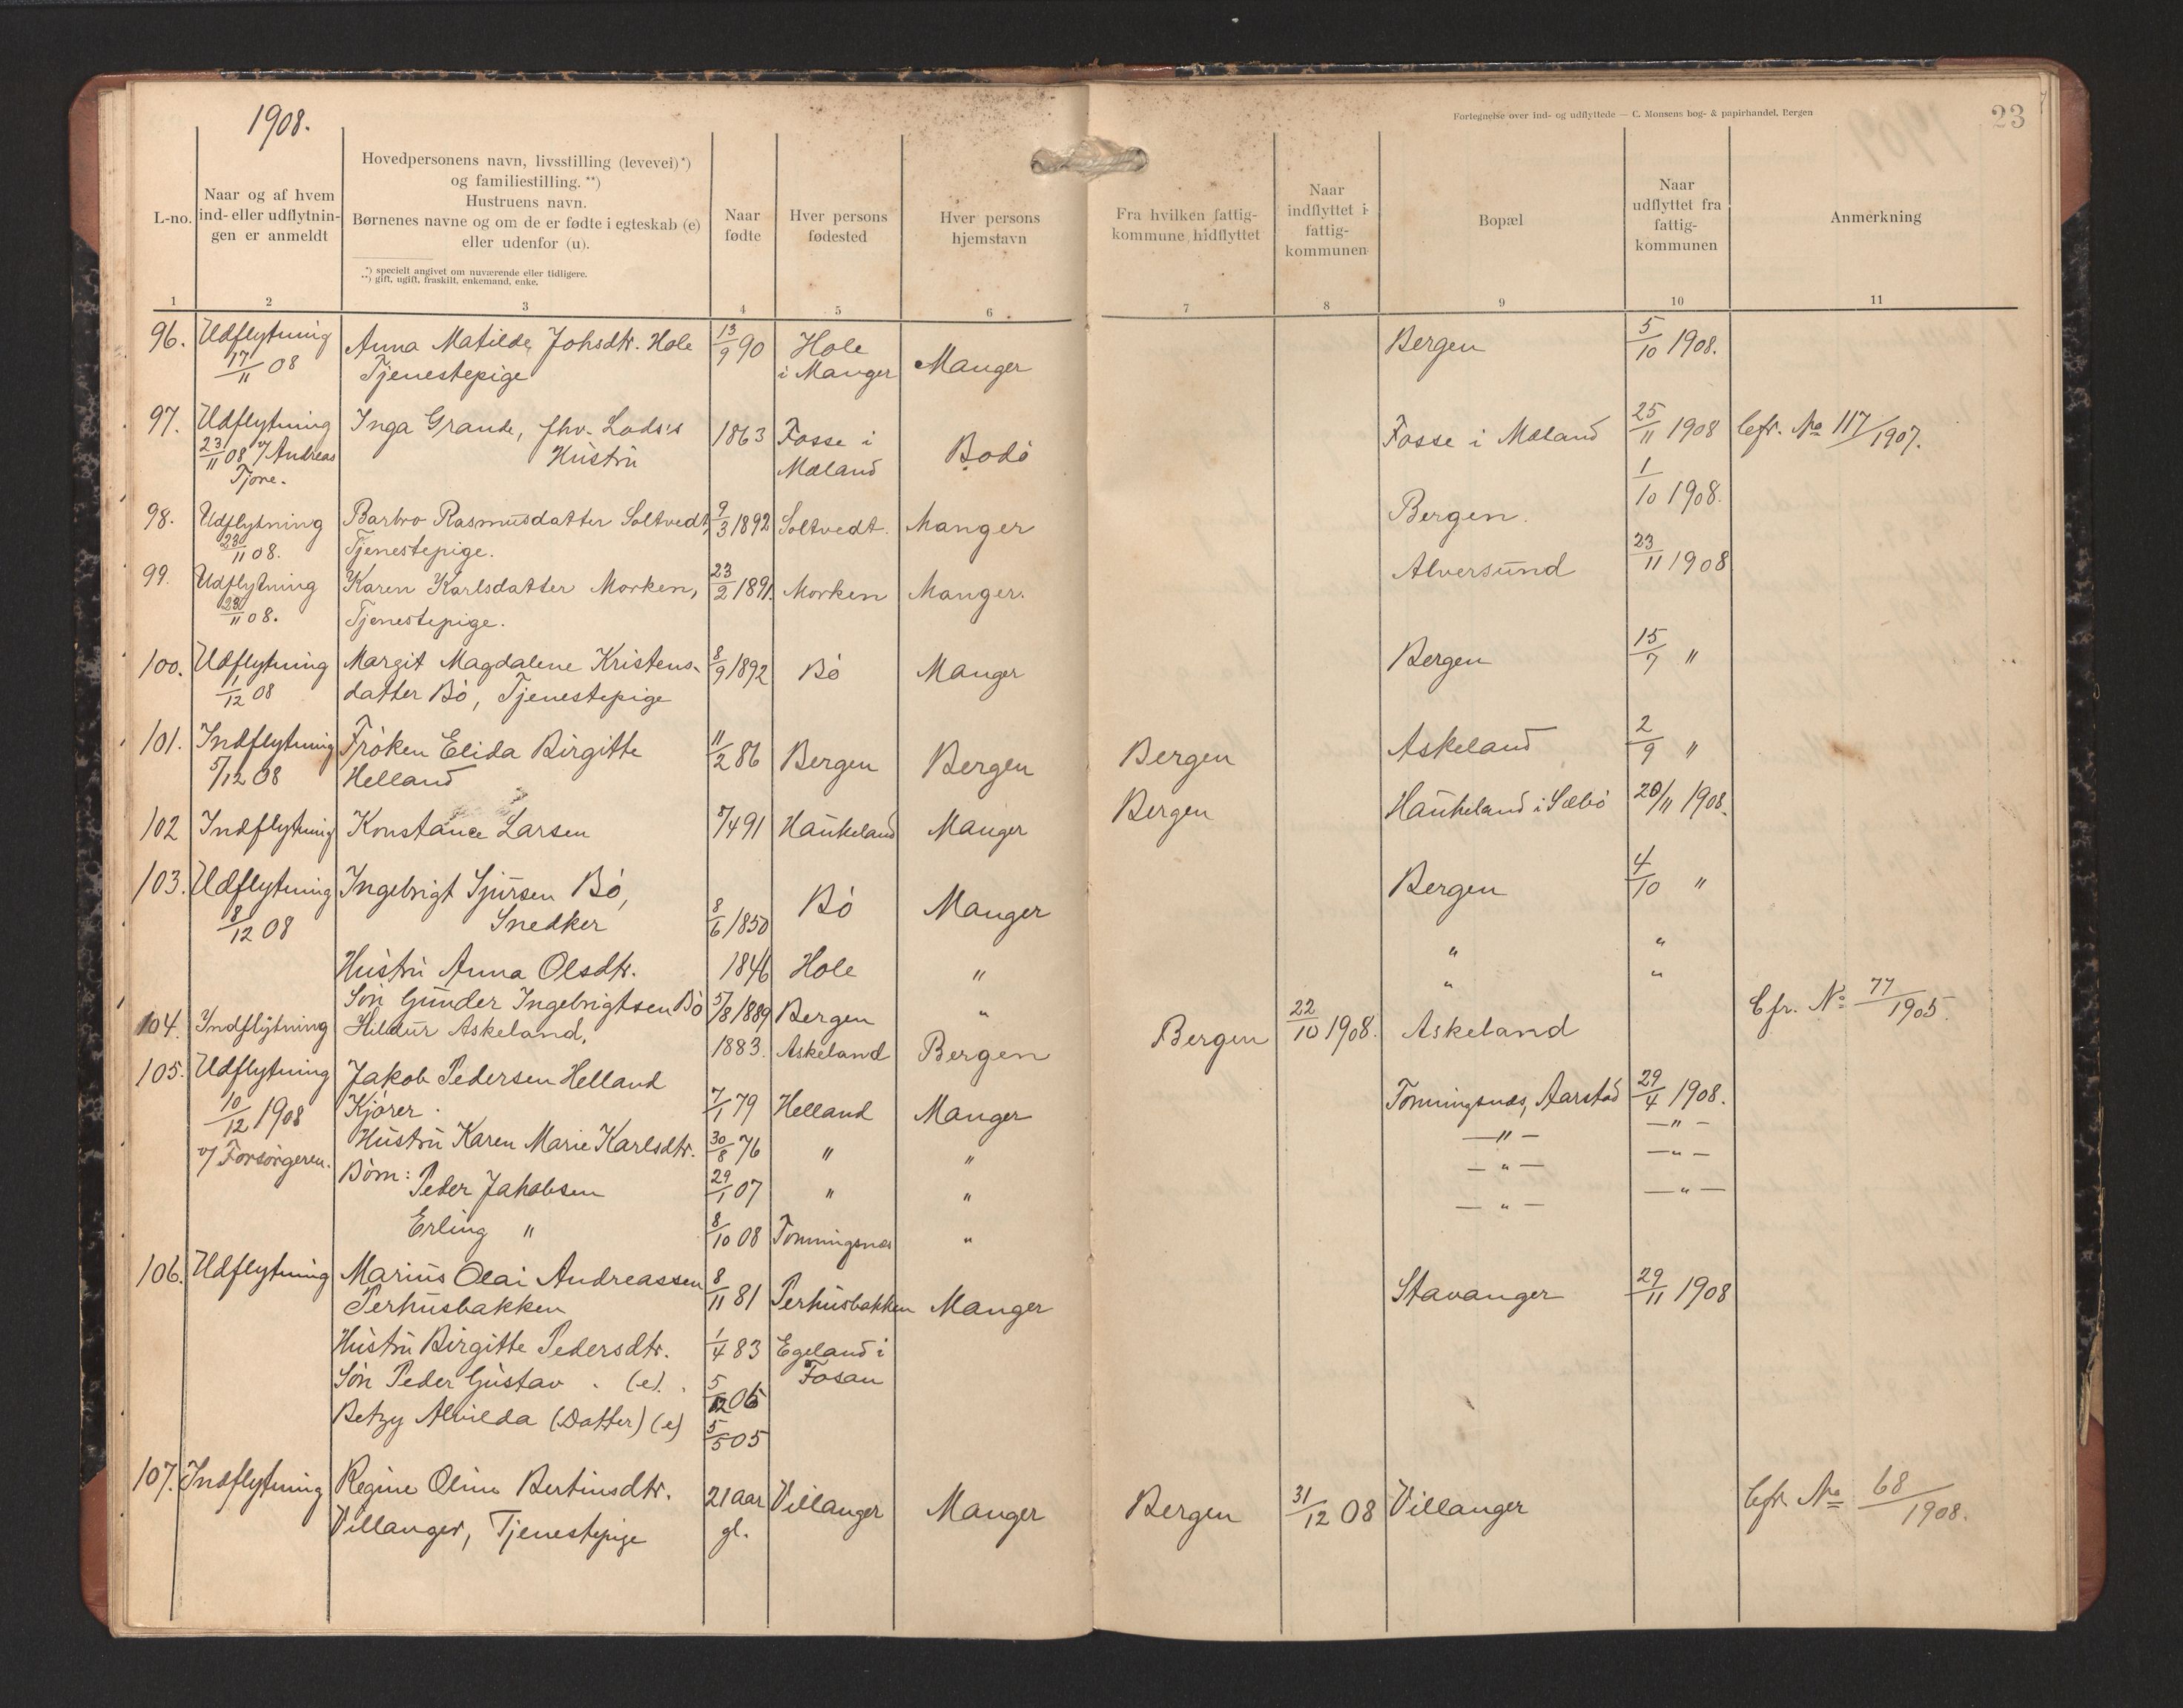 1908.
Fortegnelse over ind- og udflyttede — C. Monsens bog- & papirhandel, Bergen
23
L-no.
Naar og af hvem
ind- eller udflytnin-
gen er anmeldt
Hovedpersonens navn, livsstilling (levevei)*)
og familiestilling. **)
Hustruens navn.
Børnenes navne og om de er fødte i egteskab (e)
eller udenfor (u).
*) specielt angivet om nuværende eller tidligere.
**) gift, ugift, fraskilt, enkemand, enke.
Naar
fødte
Hver persons
fødested
Hver persons
hjemstavn
Fra hvilken fattig-
kommune hidflyttet
Naar
indflyttet i
fattig-
kommunen
Bopæl
Naar
udflyttet fra
fattig-
kommunen
Anmerkning
1 2 3 4 5 6 7 8 9 10 11
96. Udflytning Anna Matilde Johsdtr. Hole 13/9 90 Hole Bergen 5/10 1908.
17/11 08 Tjenestepige i Manger Manger
97. Udflytning Inga Grande, fhv. Lods's 1863 Fosse i Bodö Fosse i Mæland 25/11 1908 Cfr. No 117/1907.
23/11 08 v/ Andreas Hustru Mæland
Tjore.
98. Udflytning Barbro Rasmusdatter Soltvedt, 9/3 1892 Soltvedt. Manger Bergen. 1/10 1908.
23/11 08. Tjenestepige.
99. Udflytning Karen Karlsdatter Morken, 23/2 1891. Morken Manger. Alversund 23/11 1908
23/11 08. Tjenestepige.
100. Udflytning Margit Magdalene Kristens- 8/9 1892 Bö Manger Bergen 15/7 "
1/12 08 datter Bö, Tjenestepige
101. Indflytning Fröken Elida Birgitte 11/2 86 Bergen Bergen Bergen Askeland 2/9 "
5/12 08 Helland
102 Indflytning Konstance Larsen 5/4 91 Haukeland Manger Bergen Haukeland i Sæbö 20/11 1908.
103. Udflytning Ingebrigt Sjursen Bö, Bö Manger Bergen 4/10 "
8/12 08 Snedker 8/6 1850
Hustru Anna Olsdtr. 1846 Hole " " "
Sön Gunder Ingebrigtsen Bö 5/8 1889 Bergen " " " Cfr. No 77/1905.
104. Indflytning Hildur Askeland, 1883. Askeland Bergen Bergen 22/10 1908. Askeland
105. Udflytning Jakob Pedersen Helland
10/12 1908 Kjörer. 7/1 79 Helland Manger Tonningsnæs, Aarstad 29/4 1908.
v/ Forsörgeren. Hustru Karen Marie Karlsdtr. 30/8 76 " " —"— —"—
Börn: Peder Jakobsen 29/1 07 " " —"— —"—
Erling " 8/10 08 Tonningsnæs " —"— —"—
106. Udflytning Marius Olai Andreassen 8/11 81 Perhusbakken Manger Stavanger 29/11 1908
Perhusbakken
Hustru Birgitte Pedersdtr. 1/4 83 Egeland i
Sön Peder Gustav . (e). 5/12 06 Fosan
Betzy Alvilda (Datter) (e) 5/5 05
107. Indflytning Regine Oline Bertinsdtr. 21 aar Villanger Manger Bergen 31/12 08 Villanger Cfr. No 68/1908.
Villanger, Tjenestepige gl.